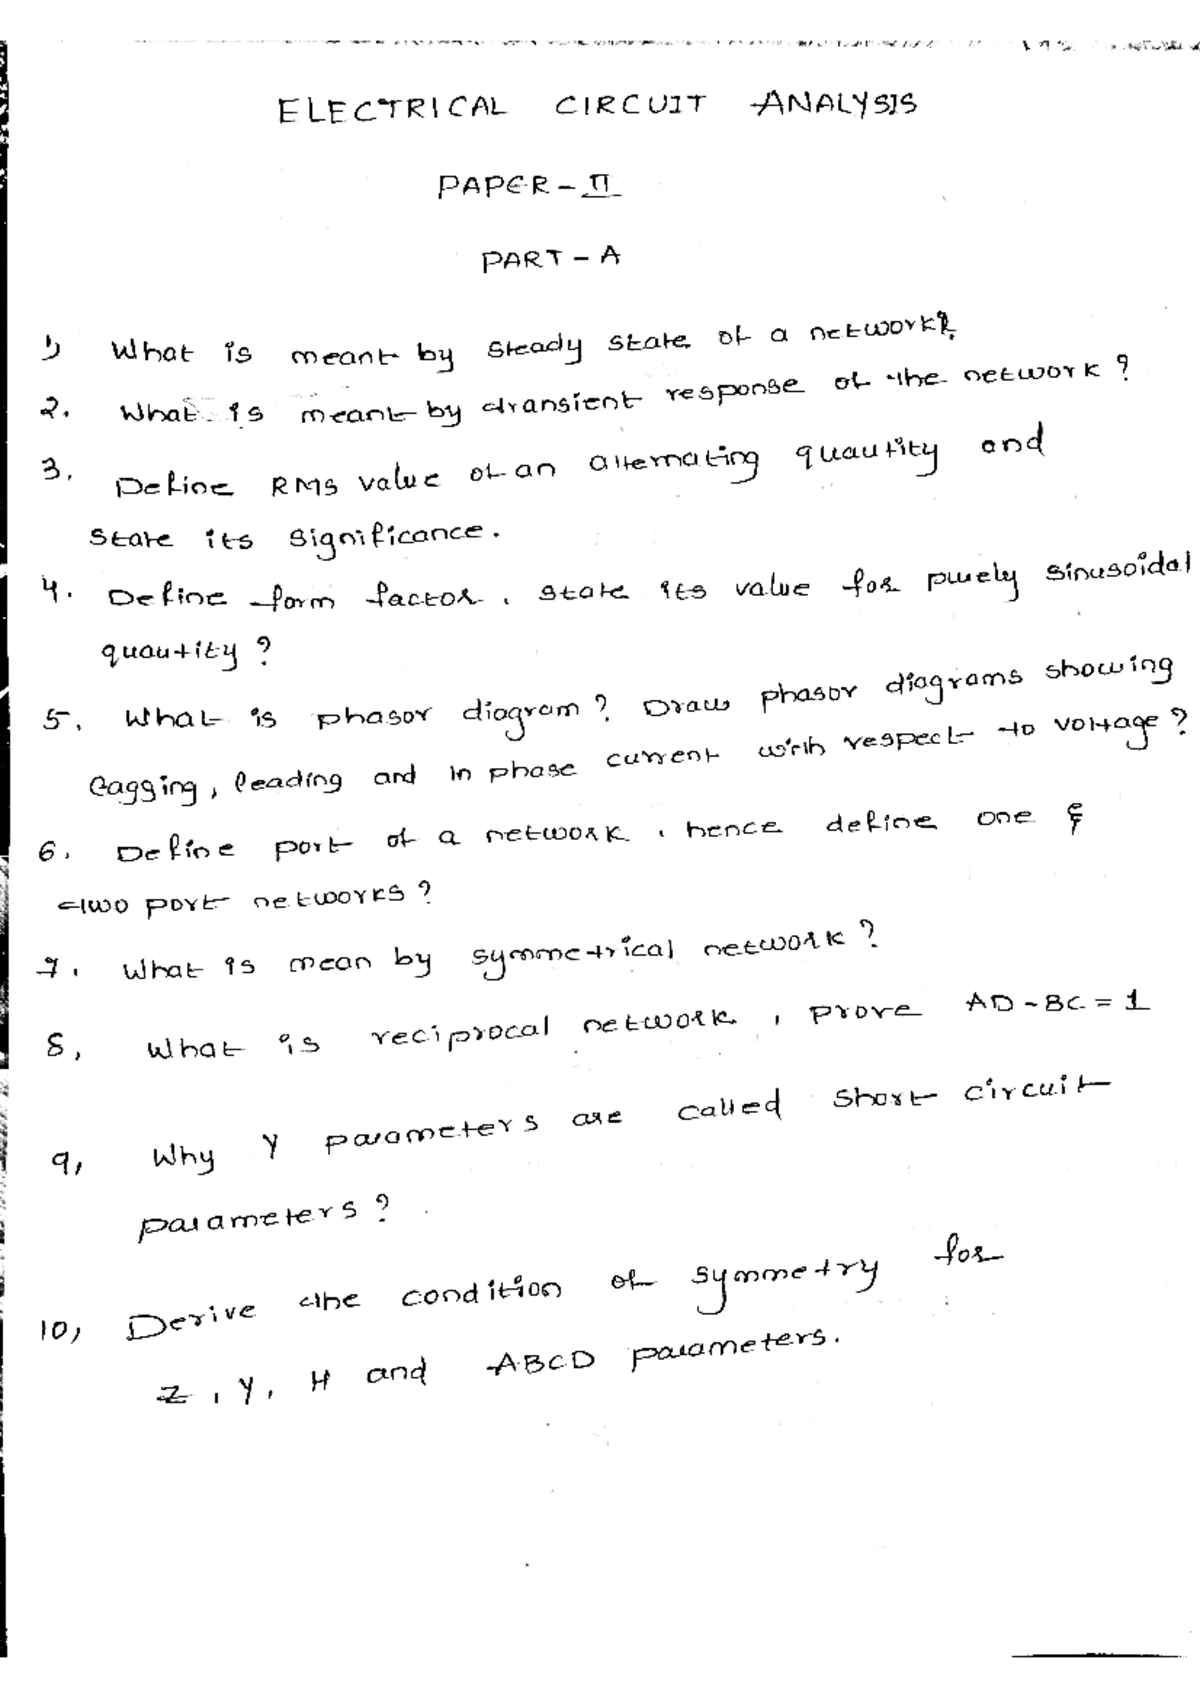 ELECTRICAL CIRCUIT ANALYSIS
PAPER - II
PART - A
1) What is meant by steady state of a network?
2. What is meant by transient response of the network ?
3. Define RMS value of an alternating quautity and
state its significance.
4. Define form factor. state its value for purely sinusoidal
quautity ?
5. What is phasor diagram ? Draw phasor diagrams showing
lagging, leading and in phase current with respect to voltage ?
6. Define port of a network, hence define one &
two port networks ?
7. What is mean by symmetrical network ?
8, What is reciprocal network, prove AD - BC = 1
9, Why Y parameters are called short circuit
parameters ?
10, Derive the condition of symmetry for
Z, Y, H and ABCD parameters.